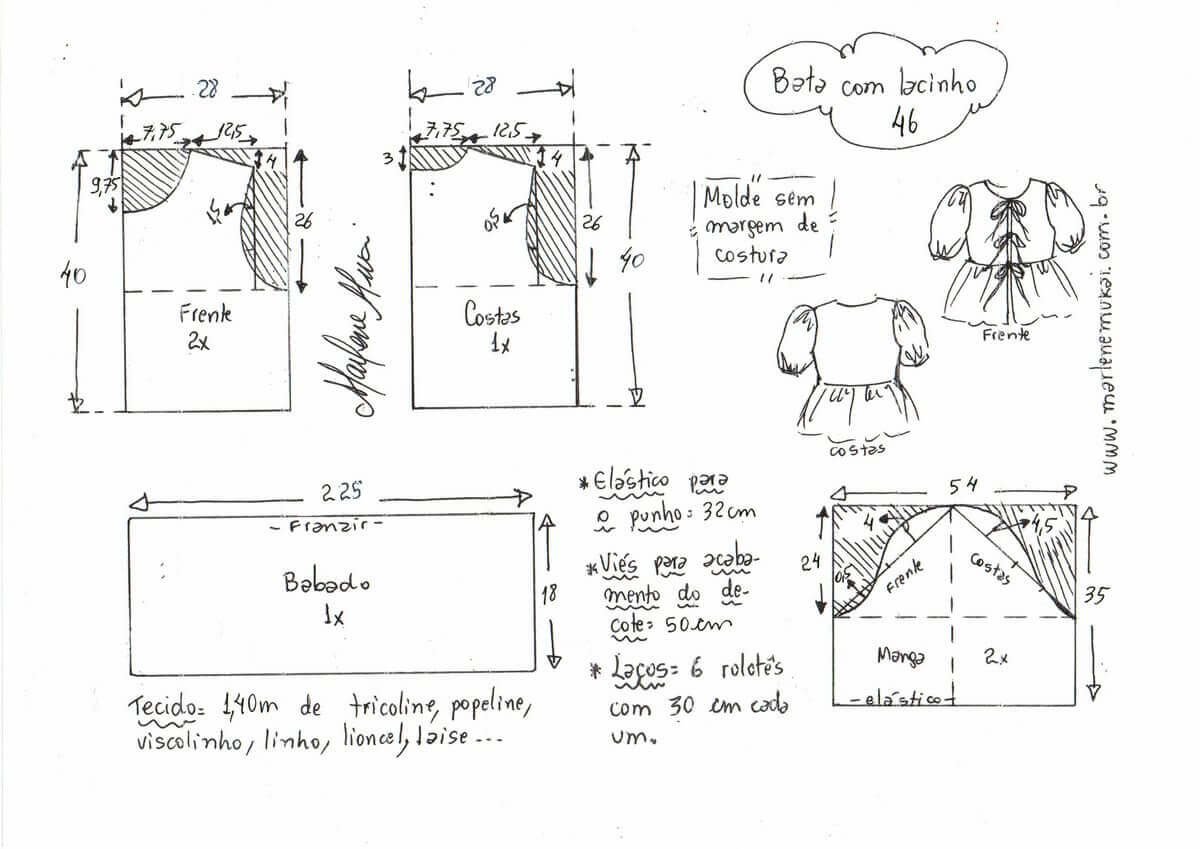 Bata com lacinho
46
28
7,75
12,5
9,75
4
26
40
Frente
2x
28
7,75
12,5
3
4
26
40
Costas
1x
Marlene Mukai
Molde sem
margem de
costura
Frente
costas
www.marlenemukai.com.br
225
- Franzir -
Babado
1x
18
Tecido= 1,40m de tricoline, popeline,
viscolinho, linho, lioncel, laise ...
* Elástico para
o punho= 32cm
* Viés para acaba-
mento do de-
cote= 50cm
* Laços= 6 rolotês
com 30 cm cada
um.
54
4
4,5
24
0,5
Frente
Costas
35
Manga 2x
- elástico -